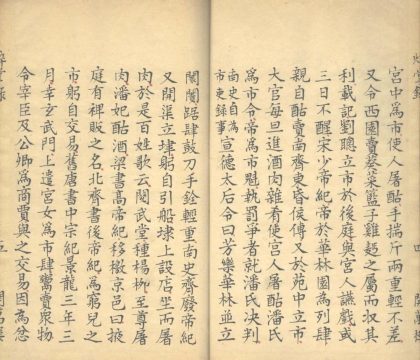 宮中爲市使人屠酤手揣斤兩重輕不差
又令西園賣葵菜籃子雞麵之屬而収其
利載記劉聰立市於後庭與宮人讌戲或
三日不醒宋少帝紀帝於華林園為列肆
親自酤賣南齊東昏侯傳又於苑中立市
大官每旦進酒肉雜肴使宮人屠酤潘氏
爲市令帝爲市魁執罰爭者就潘氏決判
南史自爲市吏録事宣德太后令曰芳樂華林並立
闤闠踞肆鼓刀手銓輕重南史齊廢帝紀
又開渠立埭躬自引船埭上設店坐而屠
肉於是百姓歌云閱武堂種楊柳至尊屠
肉潘妃酤酒梁書高帝紀移檄京邑曰掖
庭有裨販之名北齊書後帝紀爲窮兒之
市躬自交易舊唐書中宗紀景龍三年三
月幸玄武門上遣宮女爲市肆鬻賣衆物
令宰臣及公卿爲商賈與之交易因爲忿